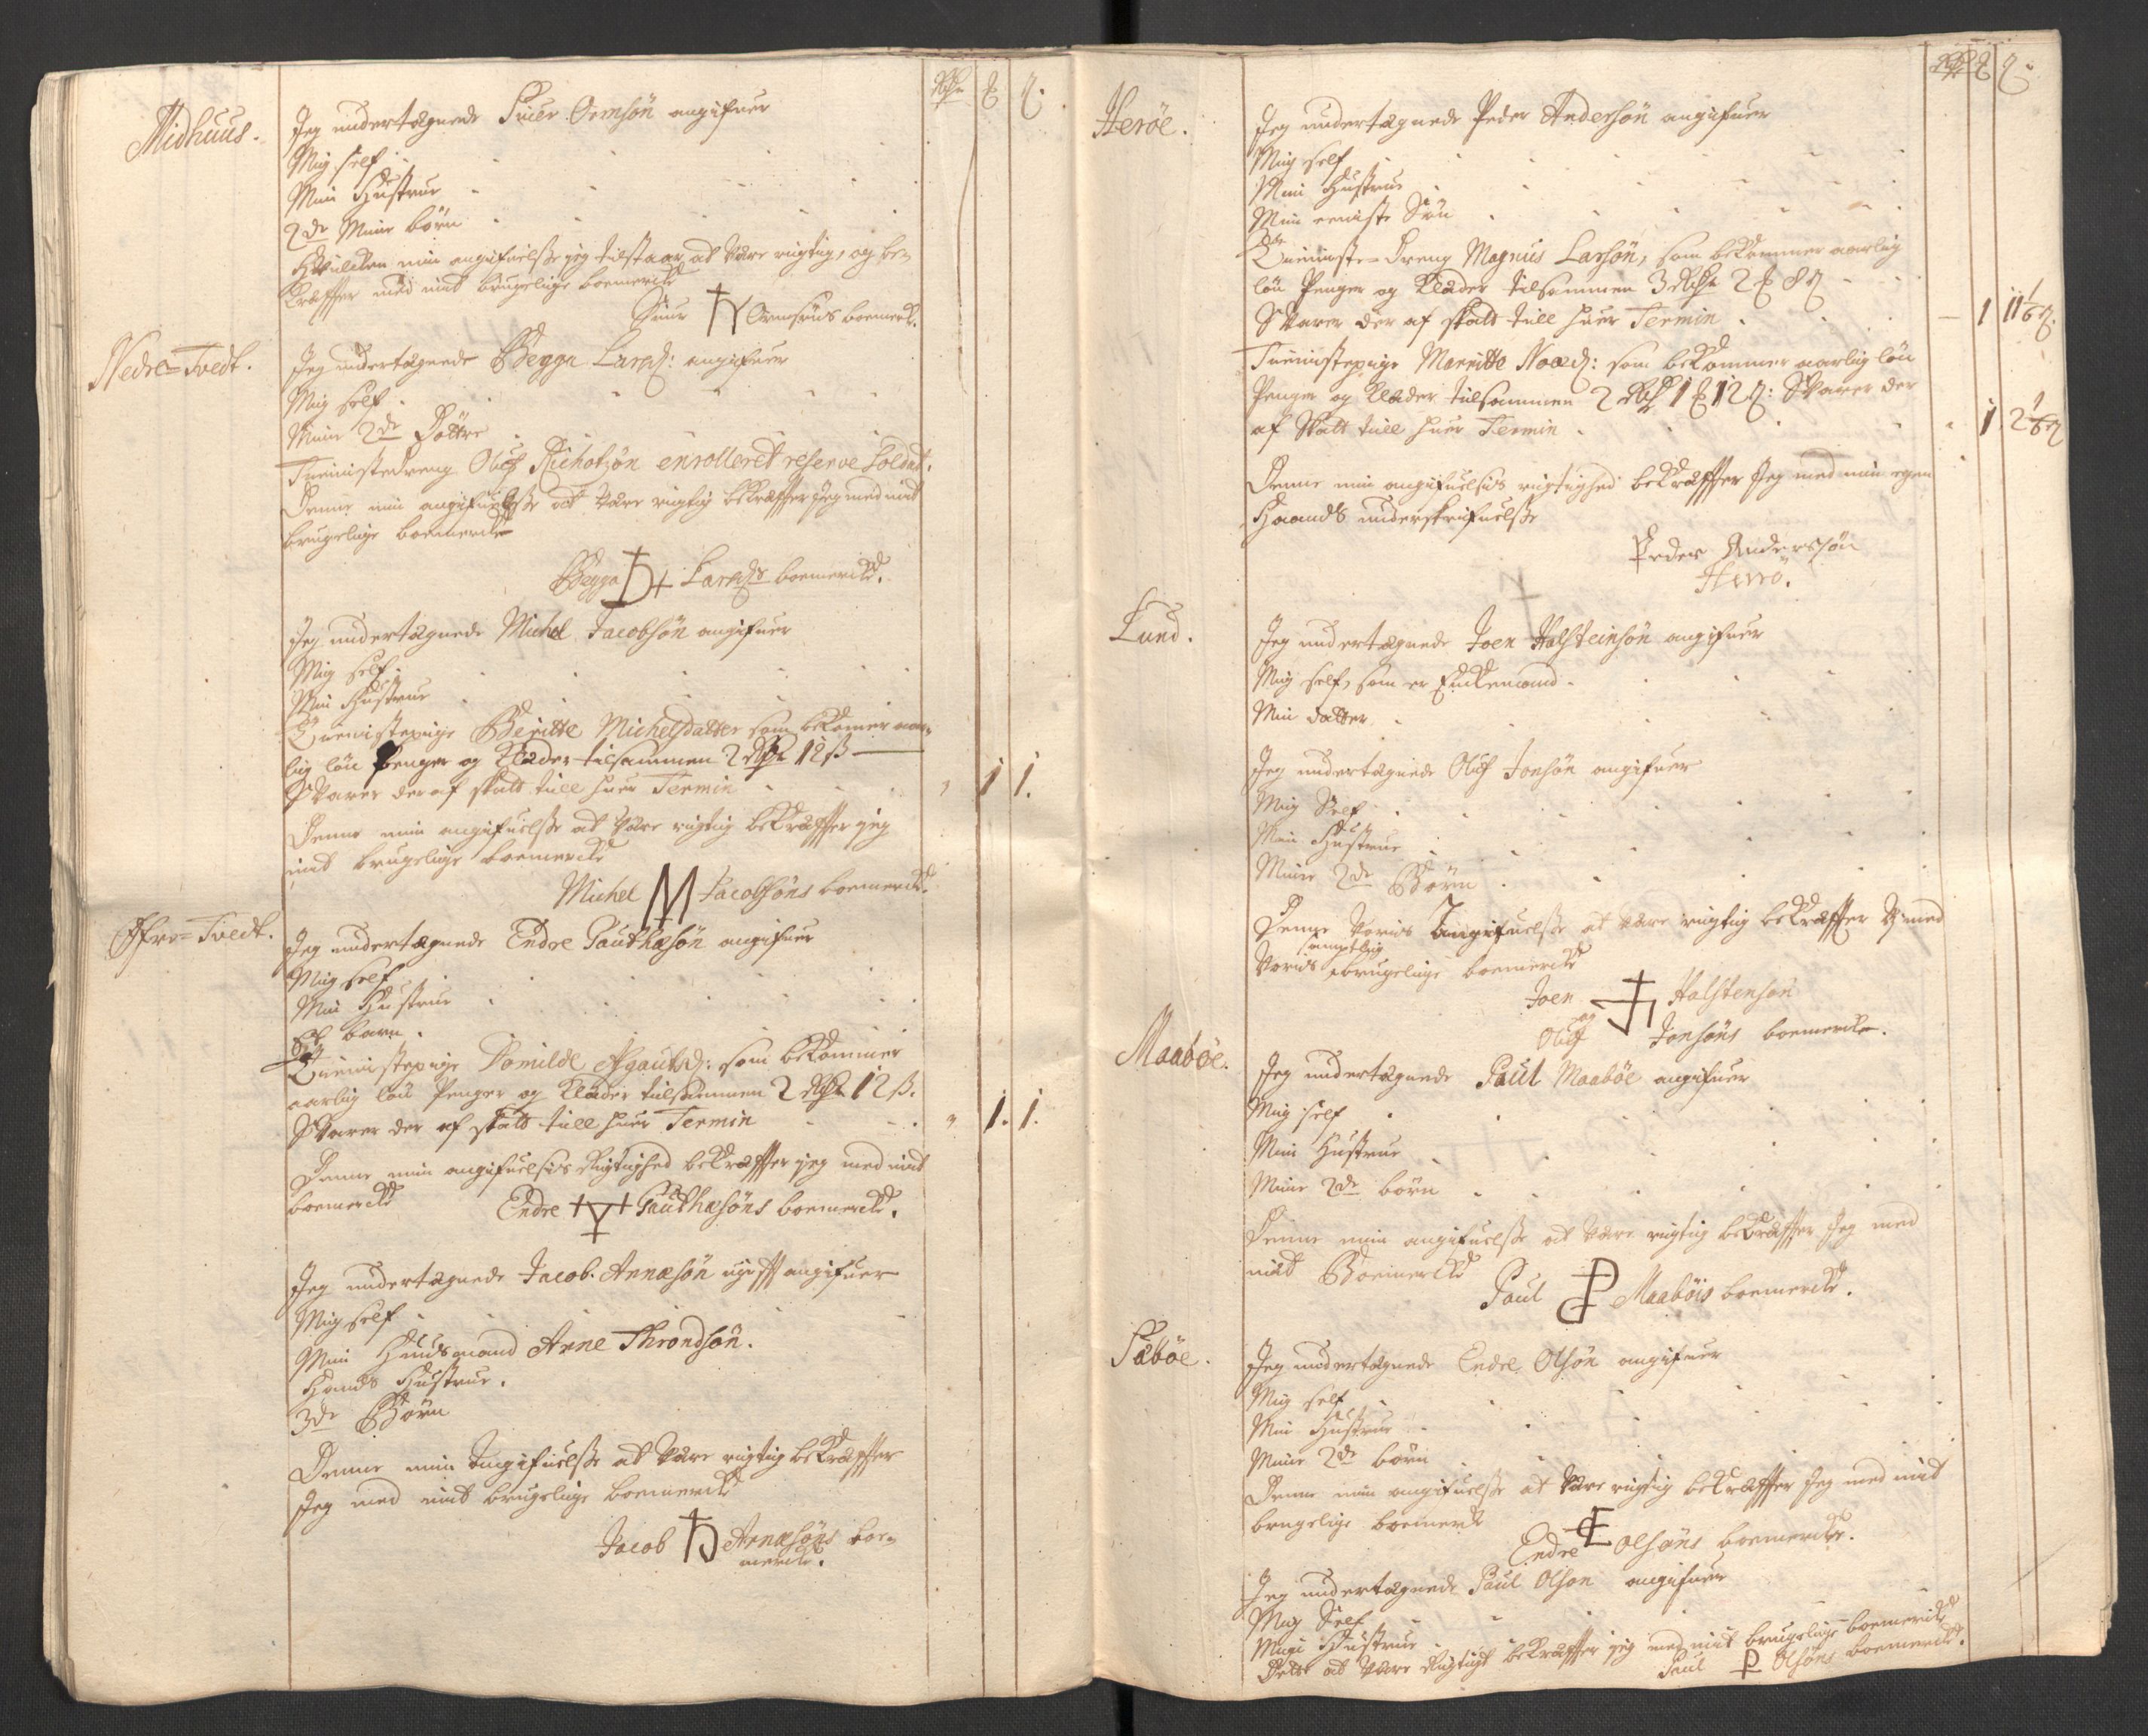 Rdr ƶ ß.
Midhuus.
Jeg undertægnede Siuer Ormsøn angifuer
Mig self
Min Hustrue
2de Mine børn
Hvilcken min angifuelsse jeg tilstaar at være rigtig, og be-
kræffter med mit brugelige boemercke
Siuer Ormsøns boemerke.
Nedre=Tvedt.
Jeg undertægnede Begga Larsd: angifuer
Mig self
Mine 2de Døttre
Tienistedreng Oluf Richolzøn enrolleret reserve Soldat.
Denne min angifuelsse at være rigtig bekræffter jeg med mit
brugelige boemercke
Begga Larsds boemercke.
Jeg undertægnede Michel Jacobsøn angifuer
Mig self
Min Hustrue
Tienistepige Beritte Michelsdatter som bekomer aar-
lig løn Penger og Klæder tilsammen 2 Rdr 12 ß
Svarer der af skatt till huer Termin 1 1.
Denne min angifuelsse at være rigtig bekræffter jeg
mit brugelige boemercke
Michel M Jacobsøns boemercke.
Øfre=Tvedt.
Jeg undertægnede Endre Gauthæsøn angifuer
Mig self
Min Hustrue
Et barn.
Tienistepige Domilde Agautsd: som bekommer
aarlig løn Penger og Klæder tilsammen 2 Rdr 12 ß.
Svarer der af skatt till huer Termin 1. 1.
Denne min angifuelsis Rigtighed bekræffter jeg med mit
boemercke
Endre Gauthæsøns boemercke.
Jeg undertægnede Jacob Arnæsøn ugifft angifuer
Mig self
Min Huusmand Arne Throndsøn.
Hands Hustrue.
3de Børn
Denne min Angifuelsse at være rigtig bekræffter
Jeg med mit brugelige boemercke
Jacob Arnæsøns boe-
mercke.
Rdr ƶ ß.
Herøe.
Jeg undertægnede Peder Andersøn angifuer
Mig self
Min Hustrue
Min eeniste Søn
Tieniste=Dreng Magnus Larsøn, som bekommer aarlig
løn Penger og Klæder tilsammen 3 Rdr 2 ƶ 8 ß
Svarer der af skatt till huer Termin 1 11 1/6 ß.
Tienistepige Marritte Noæd: som bekommer aarlig løn
Penger og Klæder tilsammen 2 Rdr 1 ƶ 12 ß: Svarer der
af Skatt till huer Termin 1 2 1/6 ß
Denne min angifuelsis rigtighed bekræffter Jeg med min egen
Haands underskrifuelsse
Peder Anderssøn
Herrö.
Lund.
Jeg undertægnede Joen Halsteinsøn angifuer
Mig self, som er Enckemand.
Min datter
Jeg undertægnede Oluf Jonsøn angifuer
Mig Self
Min Hustrue
Mine 2de Børn
Denne Voris Angifuelsse at være rigtig bekræffter Vj med
Voris samptlig brugelige boemercke
Joen Halstensøn
og
Oluf Jonsøns boemercke.
Maabøe.
Jeg undertægnede Paul Maabøe angifuer
Mig self
Min Hustrue
Mine 2de børn
Denne min angifuelsse at være rigtig bekræffter Jeg med
mit Boemercke
Paul Maabøis boemercke.
Sæbøe.
Jeg undertægnede Endre Olsøn angifuer
Mig self
Min Hustrue
Mine 2de børn
Denne min angifuelsse at være rigtig bekræffter Jeg med mit
brugelige boemerk
Endre E Olsøns boemercke.
Jeg undertægnede Paul Olson angifuer
Mig Self
Min Hustrue
Dette at være Rigtigt bekræffter jeg med mit brugelige boemercke
Paul P Olsøns boemercke.